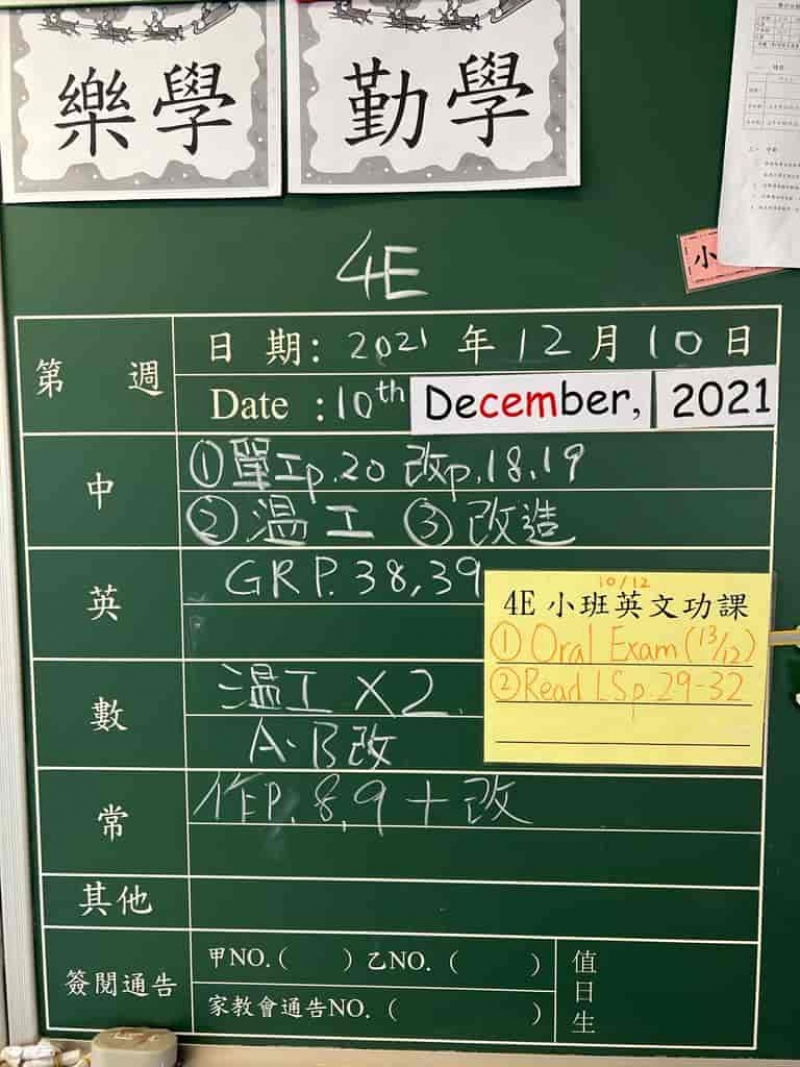 樂學
勤學
小
4E
第 週
日 期: 2021 年 12 月 10 日
Date : 10th December, 2021
中
①單工p.20 改p.18,19
②温工 ③改造
英
GRP.38,39
10/12
4E 小班英文功課
①Oral Exam (13/12)
②Read LSp.29-32
數
温工 X2
A.B改
常
作P.8,9 + 改
其他
簽閱通告
甲NO.( ) 乙NO. ( )
家教會通告NO. ( )
值日生